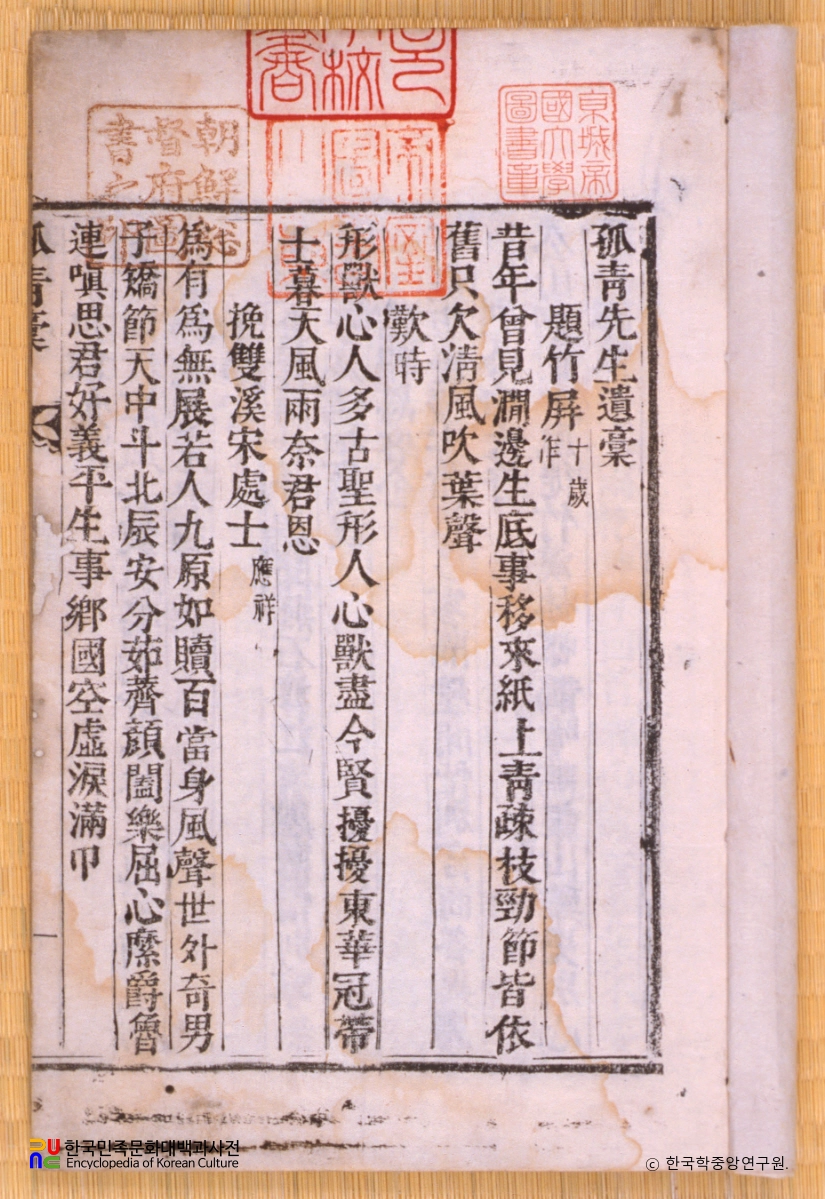 京城帝
國大學
圖書章
帝室
圖書
之章
朝鮮總
督府圖
書之印
孤靑先生遺稾
題竹屛十歲作
昔年曾見澗邊生底事移來紙上靑疎枝勁節皆依
舊只欠淸風吹葉聲
歎時
形獸心人多古聖形人心獸盡今賢擾擾東華冠帶
士暮天風雨奈君恩
挽雙溪宋處士應祥
爲有爲無展若人九原如贖百當身風聲世外奇男
子矯節天中斗北辰安分茹薺顔闔樂屈心縻爵魯
連嗔思君好義平生事鄕國空虛淚滿巾
孤靑稾
한국민족문화대백과사전
Encyclopedia of Korean Culture
ⓒ 한국학중앙연구원.